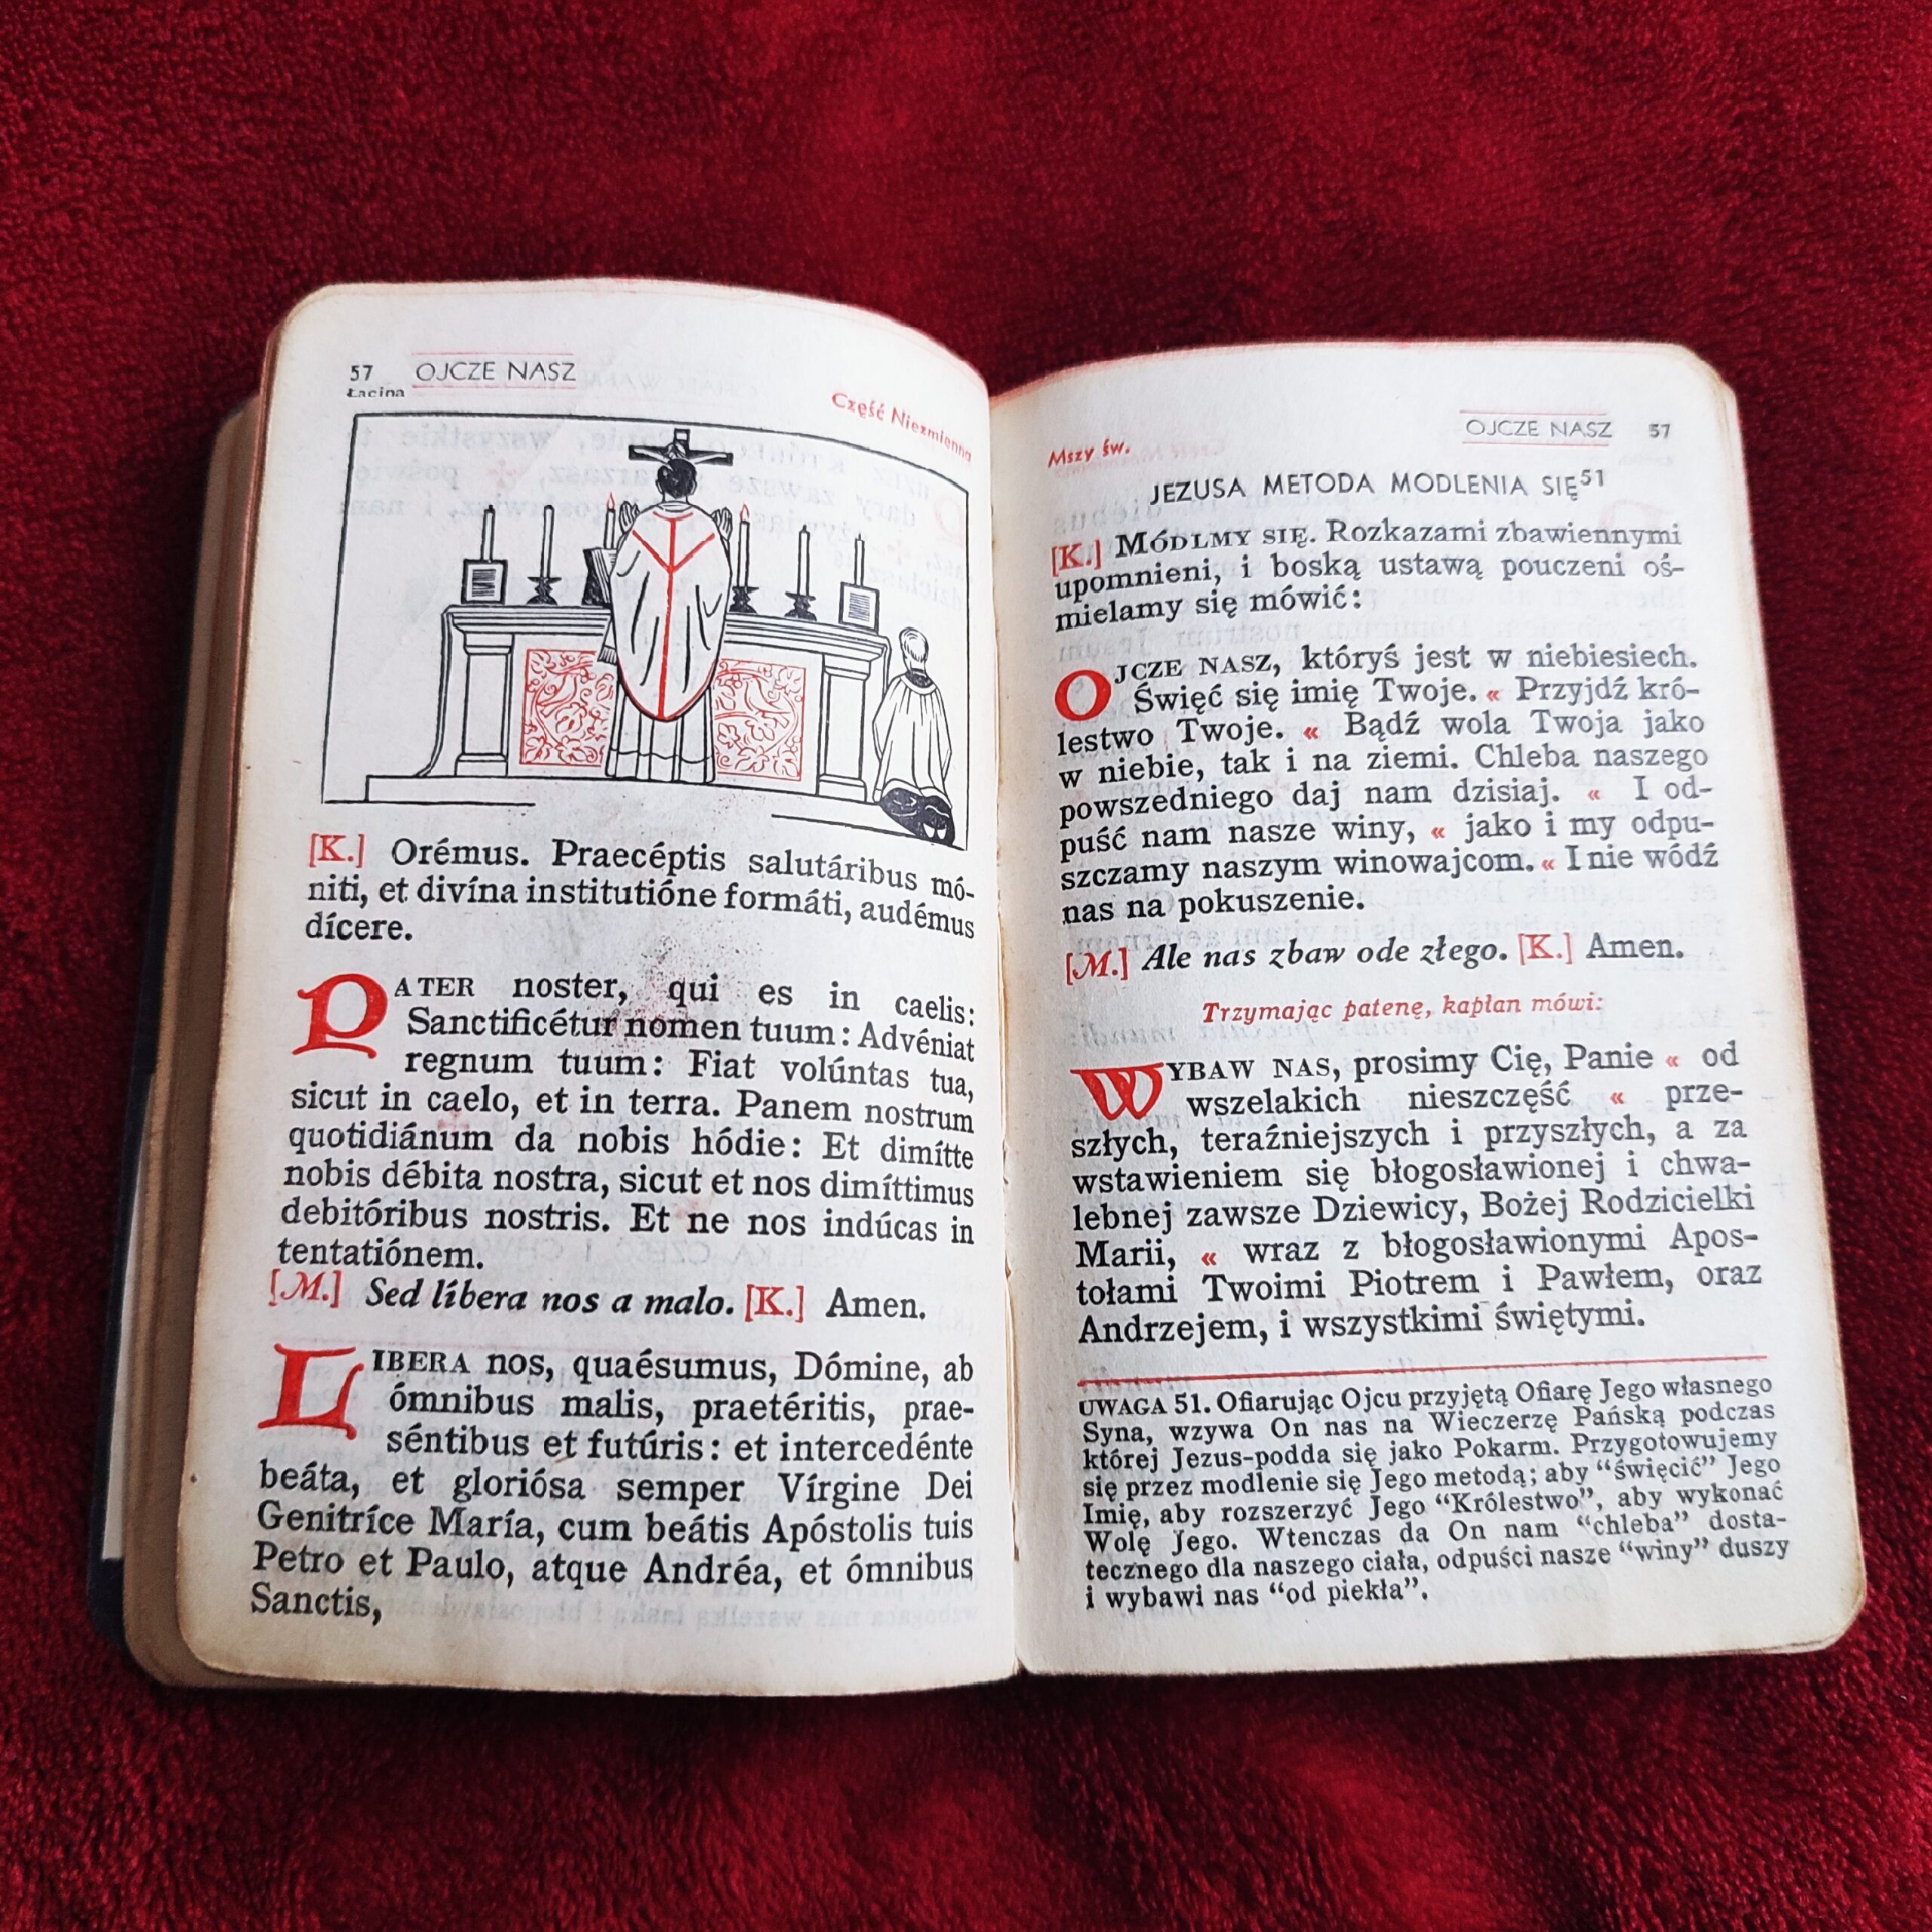 57 OJCZE NASZ
Łacina
Część Niezmienna
[K.] Orémus. Praecéptis salutáribus mó-
niti, et divína institutióne formáti, audémus
dícere.
PATER noster, qui es in caelis:
Sanctificétur nomen tuum: Advéniat
regnum tuum: Fiat volúntas tua,
sicut in caelo, et in terra. Panem nostrum
quotidiánum da nobis hódie: Et dimítte
nobis débita nostra, sicut et nos dimíttimus
debitóribus nostris. Et ne nos indúcas in
tentatiónem.
[M.] Sed líbera nos a malo. [K.] Amen.
LIBERA nos, quaésumus, Dómine, ab
ómnibus malis, praetéritis, prae-
séntibus et futúris: et intercedénte
beáta, et gloriósa semper Vírgine Dei
Genitríce María, cum beátis Apóstolis tuis
Petro et Paulo, atque Andréa, et ómnibus
Sanctis,
OJCZE NASZ 57
Mszy św.
JEZUSA METODA MODLENIA SIĘ51
[K.] MÓDLMY SIĘ. Rozkazami zbawiennymi
upomnieni, i boską ustawą pouczeni oś-
mielamy się mówić:
OJCZE NASZ, któryś jest w niebiesiech.
Święć się imię Twoje. « Przyjdź kró-
lestwo Twoje. « Bądź wola Twoja jako
w niebie, tak i na ziemi. Chleba naszego
powszedniego daj nam dzisiaj. « I od-
puść nam nasze winy, « jako i my odpu-
szczamy naszym winowajcom. « I nie wódź
nas na pokuszenie.
[M.] Ale nas zbaw ode złego. [K.] Amen.
Trzymając patenę, kapłan mówi:
WYBAW NAS, prosimy Cię, Panie « od
wszelakich nieszczęść « prze-
szłych, teraźniejszych i przyszłych, a za
wstawieniem się błogosławionej i chwa-
lebnej zawsze Dziewicy, Bożej Rodzicielki
Marii, « wraz z błogosławionymi Apos-
tołami Twoimi Piotrem i Pawłem, oraz
Andrzejem, i wszystkimi świętymi.
UWAGA 51. Ofiarując Ojcu przyjętą Ofiarę Jego własnego
Syna, wzywa On nas na Wieczerzę Pańską podczas
której Jezus-podda się jako Pokarm. Przygotowujemy
się przez modlenie się Jego metodą; aby “święcić” Jego
Imię, aby rozszerzyć Jego “Królestwo”, aby wykonać
Wolę Jego. Wtenczas da On nam “chleba” dosta-
tecznego dla naszego ciała, odpuści nasze “winy” duszy
i wybawi nas “od piekła”.